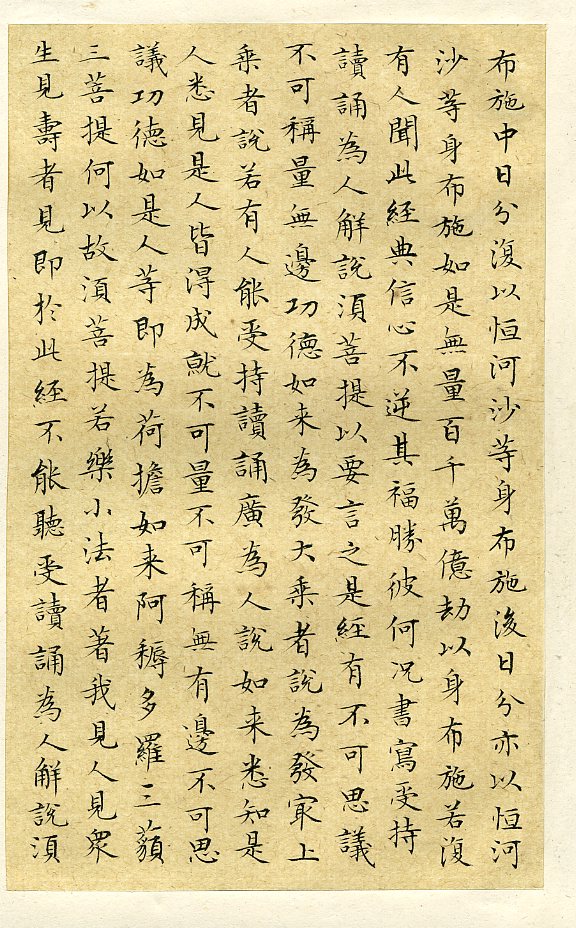 布施中日分復以恒河沙等身布施後日分亦以恒河
沙等身布施如是無量百千萬億劫以身布施若復
有人聞此經典信心不逆其福勝彼何况書寫受持
讀誦為人解說須菩提以要言之是經有不可思議
不可稱量無邊功德如来為發大乘者說為發冣上
乘者說若有人能受持讀誦廣為人說如来悉知是
人悉見是人皆得成就不可量不可稱無有邊不可思
議功德如是人等即為荷擔如来阿耨多羅三藐
三菩提何以故須菩提若樂小法者著我見人見眾
生見壽者見即於此經不能聽受讀誦為人解說須